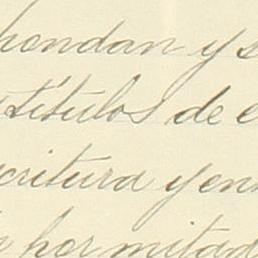 pondan y s
títulos de e
critura y en
por mitad